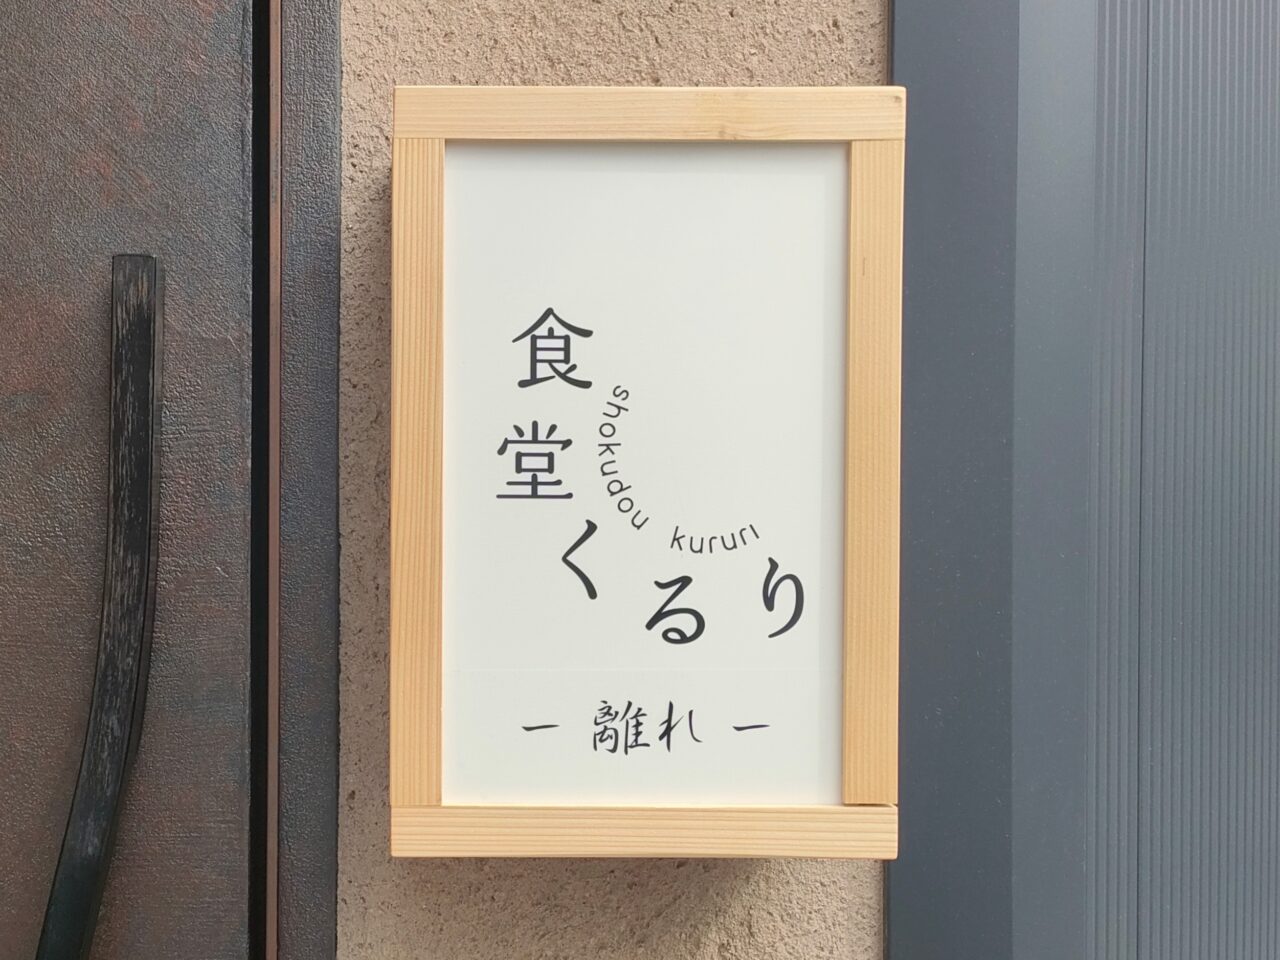 食堂くるり
shokudou kururi
－ 離れ －